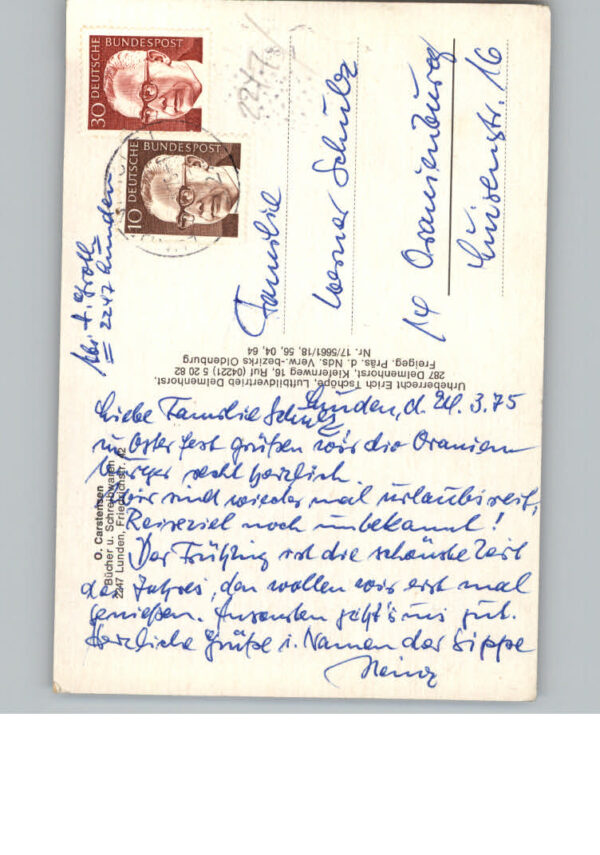 30 DEUTSCHE BUNDESPOST
10 DEUTSCHE BUNDESPOST
2247 Lunden
Familie
Werner Schulz
14 Oranienburg
Luisenstr. 16
Urheberrecht Erich Tschöpe, Luftbildvertrieb Delmenhorst,
287 Delmenhorst, Kiefernweg 16, Ruf (04221) 5 20 82
Freigeg. Präs. d. Nds. Verw.-bezirks Oldenburg
Nr. 17/5661/18, 56, 04, 64
O. Carstensen
Bücher u. Schreibwaren
2247 Lunden, Friedrichstr. 12
Lunden, d. 24. 3. 75
Liebe Familie Schulz,
zum Osterfest grüßen wir die Oranien
burger recht herzlich.
Wir sind wieder mal urlaubsreif,
Reiseziel noch unbekannt!
Der Frühling ist die schönste Zeit
des Jahres, den wollen wir erst mal
genießen. Ansonsten geht's uns gut.
Herzliche Grüße i. Namen der Sippe
Heinz